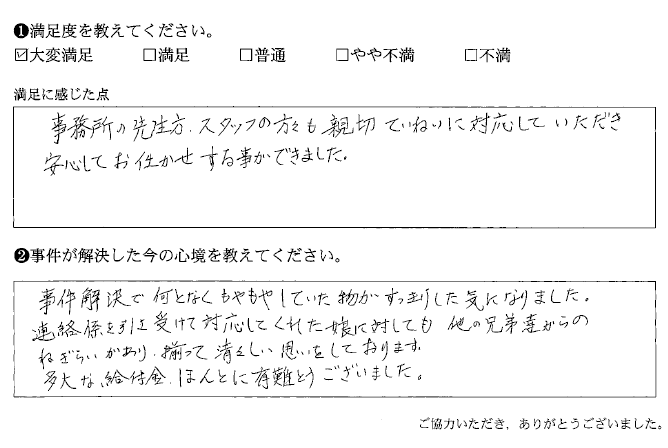 ❶満足度を教えてください。
☑大変満足 □満足 □普通 □やや不満 □不満
満足に感じた点
事務所の先生方、スタッフの方々も親切ていねいに対応していただき
安心してお任かせする事ができました。
❷事件が解決した今の心境を教えてください。
事件解決で何となくもやもやしていた物がすっきりした気になりました。
連絡係を引き受けて対応してくれた娘に対しても他の兄弟達からの
ねぎらいがあり、揃って清々しい思いをしております。
多大な給付金、ほんとに有難とうございました。
ご協力いただき、ありがとうございました。